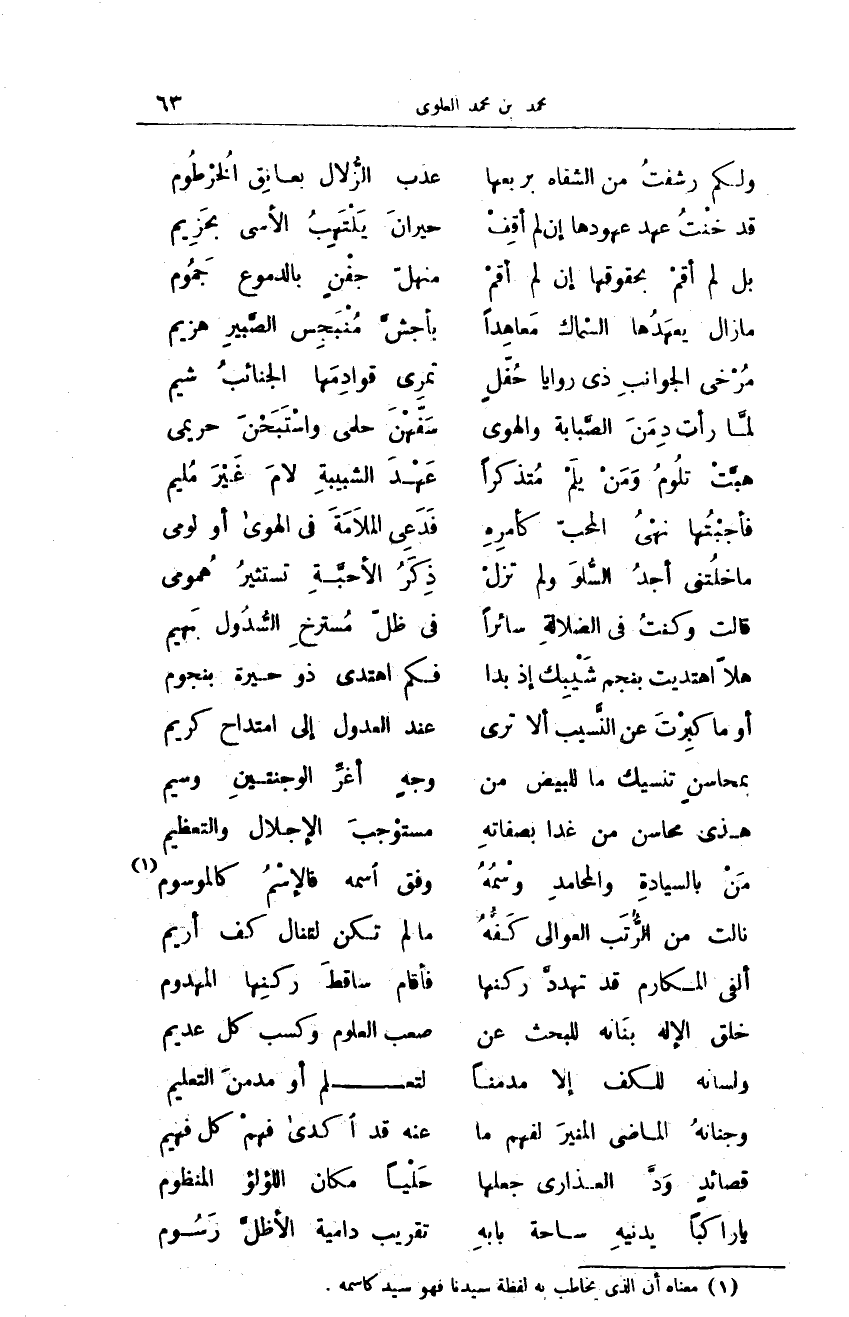 محمد بن محمد العلوى ٦٣
ولكم رشفتُ من الشفاه بربعها عذب الزُّلال بعانِق الُخرْطُوم
قد خنْتُ عهد عهودها إن لم أقِفْ حيرانَ يَلْتَهِبُ الأسى بحَزِيم
بل لم أقمْ بحقوقها إن لم أقمْ منهلّ جفْنٍ بالدموع جَمُوم
مازال يعهَدُها السّماك مَعاهِداً بأجشَّ مُنْبَجِس الصَّبيرِ هزيم
مُرْخى الجوانبِ ذى روايا حُفّلٍ تمرِى قوادِمَها الجنائبُ شيم
لمَّا رأت دِمَنَ الصَّبابة والهوى سَفَّهْنَ حلمى واسْتَبَحْنَ حريمى
هبَّتْ تلُومُ وَمَنْ يلَمْ مُتذكراً عَهْدَ الشبيبةِ لامَ غَيْرَ مُليم
فأجبْتُها نهْىُ المحبّ كأمرِهِ فَدَعِى الملاَمَةَ فى الهوىٰ أو لومى
ماخلْتنى أجدُ السُّلوَ ولم تزلْ ذِكَرُ الأحبَّةِ تستثيرُ هُمومى
قالت وكنتُ فى الضلالةِ سائراً فى ظلّ مُسترخِ السُّدُول بَهيم
هلاّ اهتديت بنجم شَيْبِك إذ بدا فكم اهتدى ذو حيرة بنجوم
أو ماكبِرْتَ عن النَّسيب ألا ترى عند العدول إلى امتداح كريم
بمحاسنٍ تنسيك ما للبيض من وجهٍ أغرِّ الوجنتينِ وسيم
هذى محاسن من غدا بصفاتهِ مستوْجبَ الإجلال والتعظيم
مَنْ بالسيادةِ والمحامدِ وسْمُهُ وفق اسمه فالإسْمُ كالموسوم(١)
نالت من الرُّتَب العوالى كَفُّهُ مالم تكن لتنال كف أريم
ألفى المكارم قد تهددَّ ركنها فأقام ساقطَ ركنِها المهدوم
خلق الإله بنَانه للبحث عن صعب العلوم وكسب كل عديم
ولسانه للكف إلا مدمناً لتعلم أو مدمنَ التعليم
وجنانهُ الماضى المنيرَ لفهم ما عنه قد أكدىٰ فهمْ كل فهيم
قصائدٍ وَدَّ العذارى جعلها حَلْياً مكان اللؤلؤ المنظوم
ياراكباً يدنيهِ ساحة بابهِ تقريب دامية الأظلَّ رَسُوم
(١) معناه أن الذى يخاطب به لفظة سيدنا فهو سيد كاسمه .